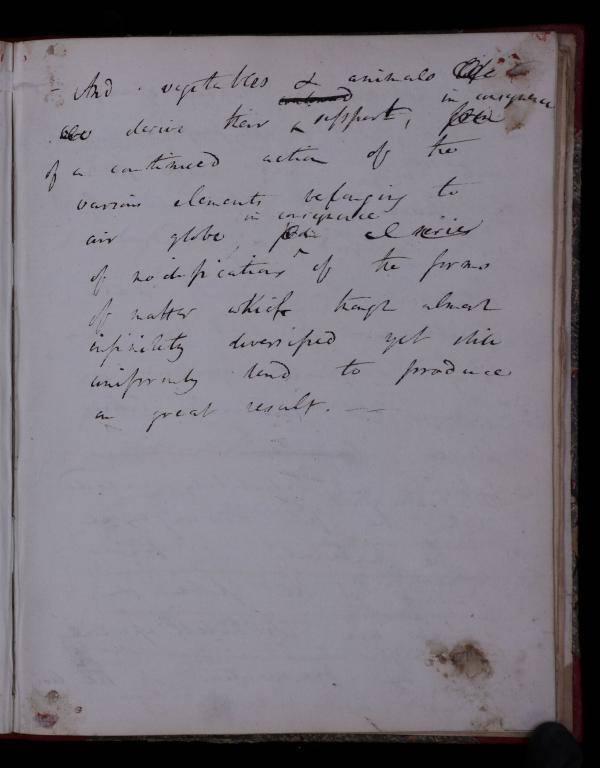 - And vegetables & animals
in consequence
derive their support,
of a continued action of the
various elements belonging to
in consequence
air globe, series
of modifications ^ of the forms
of matter which though almost
infinitely diversified yet still
uniformly tend to produce
a great result. —